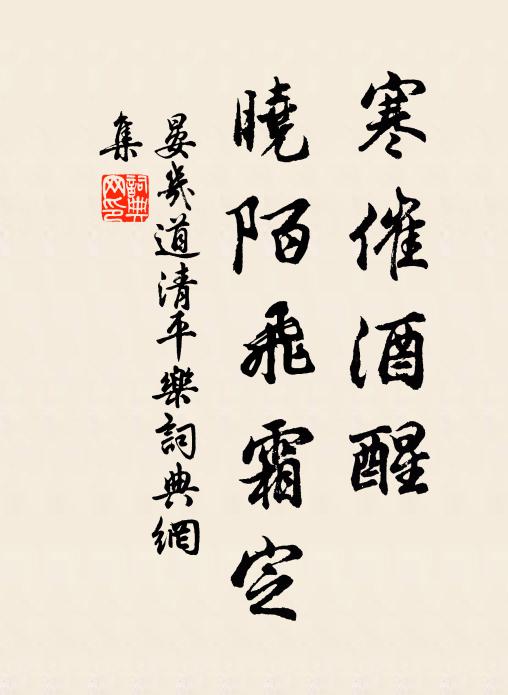 寒催酒醒
曉陌飛霜定
晏幾道清平樂詞典網
集
詞典網印